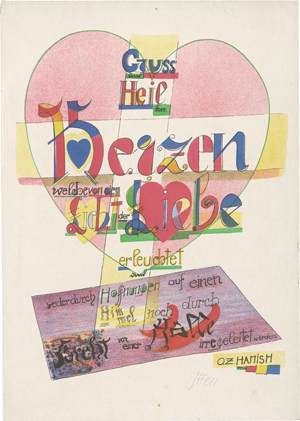 Gruss
und
Heil
den
Herzen
welche von dem
Licht der Liebe
erleuchtet
und
weder durch Hoffnungen auf einen
Himmel noch durch
Furcht vor einer Hölle
irregeleitet werden.
O.Z. HANISH
Itten